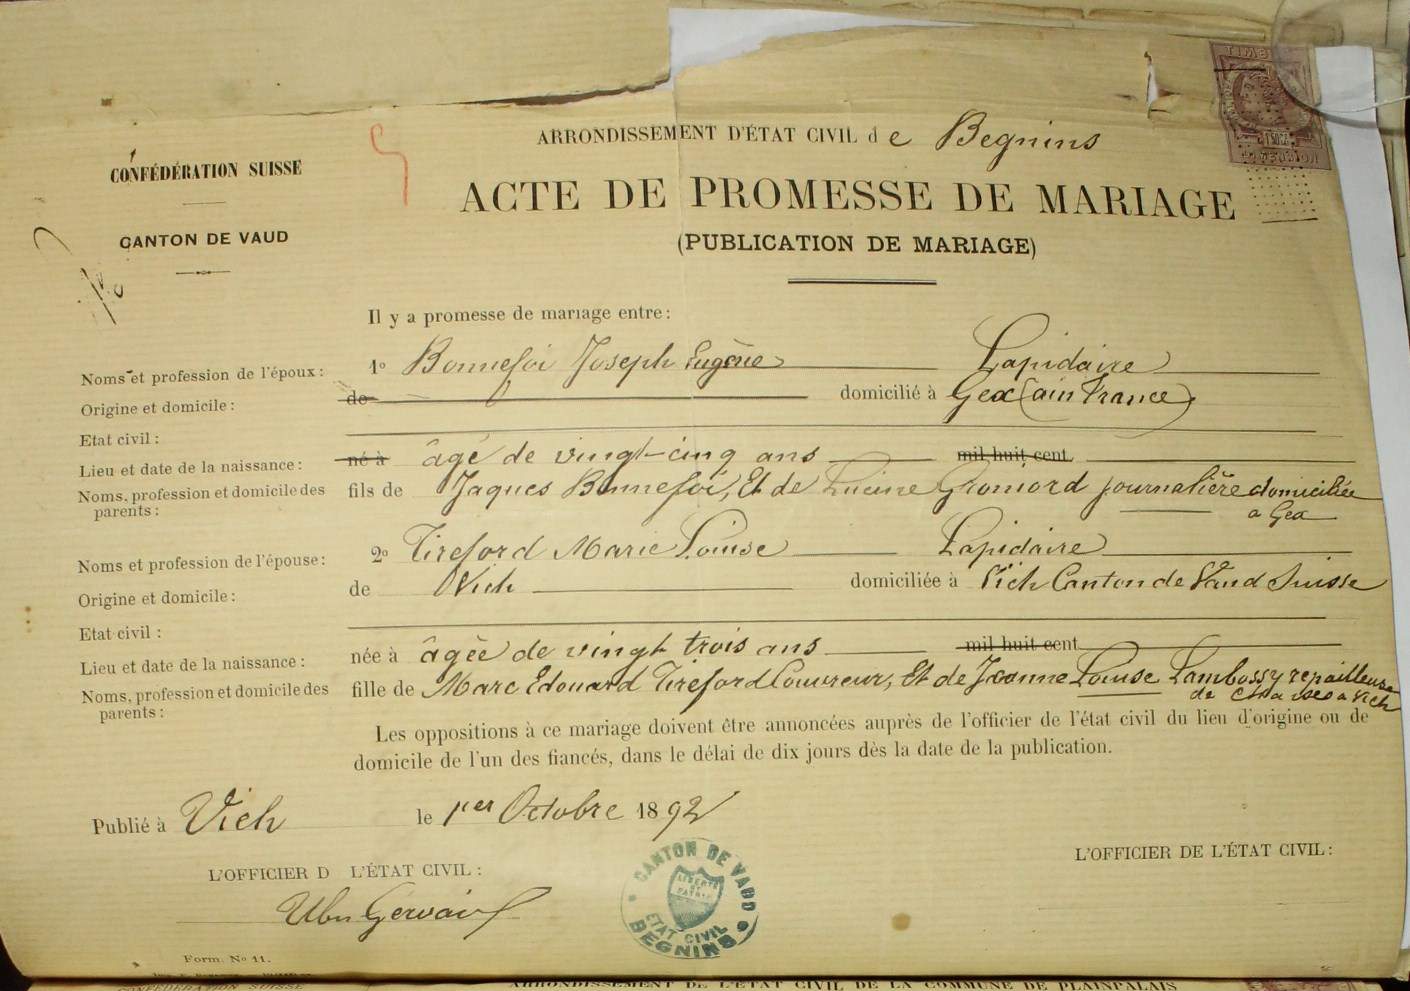 ARRONDISSEMENT D'ÉTAT CIVIL de Begnins
CONFÉDÉRATION SUISSE
CANTON DE VAUD
ACTE DE PROMESSE DE MARIAGE
(PUBLICATION DE MARIAGE)
Il y a promesse de mariage entre:
Noms et profession de l'époux: 1º Bonnefoi Joseph Eugène Lapidaire
Origine et domicile: de domicilié à Gex (ain France)
Etat civil:
Lieu et date de la naissance: né à âgé de vingt-cinq ans mil huit cent
Noms, profession et domicile des parents: fils de Jaques Bonnefoi, Et de Lucine Gromord journalière domiciliée
a Gex
Noms et profession de l'épouse: 2º Tireford Marie Louise Lapidaire
Origine et domicile: de Vich domiciliée à Vich Canton de Vaud Suisse
Etat civil:
Lieu et date de la naissance: née à âgée de vingt trois ans mil huit cent
Noms, profession et domicile des parents: fille de Marc Edouard Tireford Couvreur, Et de Jeanne Louise Lambossy repailleuse
de chaises a Vich
Les oppositions à ce mariage doivent être annoncées auprès de l'officier de l'état civil du lieu d'origine ou de
domicile de l'un des fiancés, dans le délai de dix jours dès la date de la publication.
Publié à Vich le 1er Octobre 1892
L'OFFICIER D L'ÉTAT CIVIL:
L'OFFICIER DE L'ÉTAT CIVIL:
Gervaix
CANTON DE VAUD
LIBERTÉ
ET
PATRIE
ETAT CIVIL
BEGNINS
Form. Nº 11.
CONFÉDÉRATION SUISSE
ARRONDISSEMENT DE L'ÉTAT CIVIL DE LA COMMUNE DE PLAINPALAIS